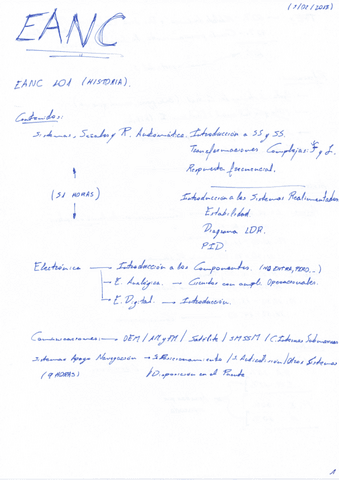 (7/02/2017)
EANC
EANC 101 (HISTORIA).
Contenidos:
Sistemas, Señales y R. Automática. Introducción a SS y SS.
Transformaciones Complejas: F y L.
Respuesta frecuencial.
(51 HORAS)
Introducción a los Sistemas Realimentados
Estabilidad.
Diagrama LDR.
PID.
Electrónica Introducción a los Componentes. (NO ENTRA, PERO...)
E. Analógica. Circuitos con ampli. Operacionales.
E. Digital Introducción.
Comunicaciones OEM / AM y FM / Satélite / SMSSM / C. Internas Submarinas
Sistemas Apoyo Navegación S. Posicionamiento / S. Radiodifusión / Otros Sistemas
(9 HORAS) / Disposición en el Puente
1